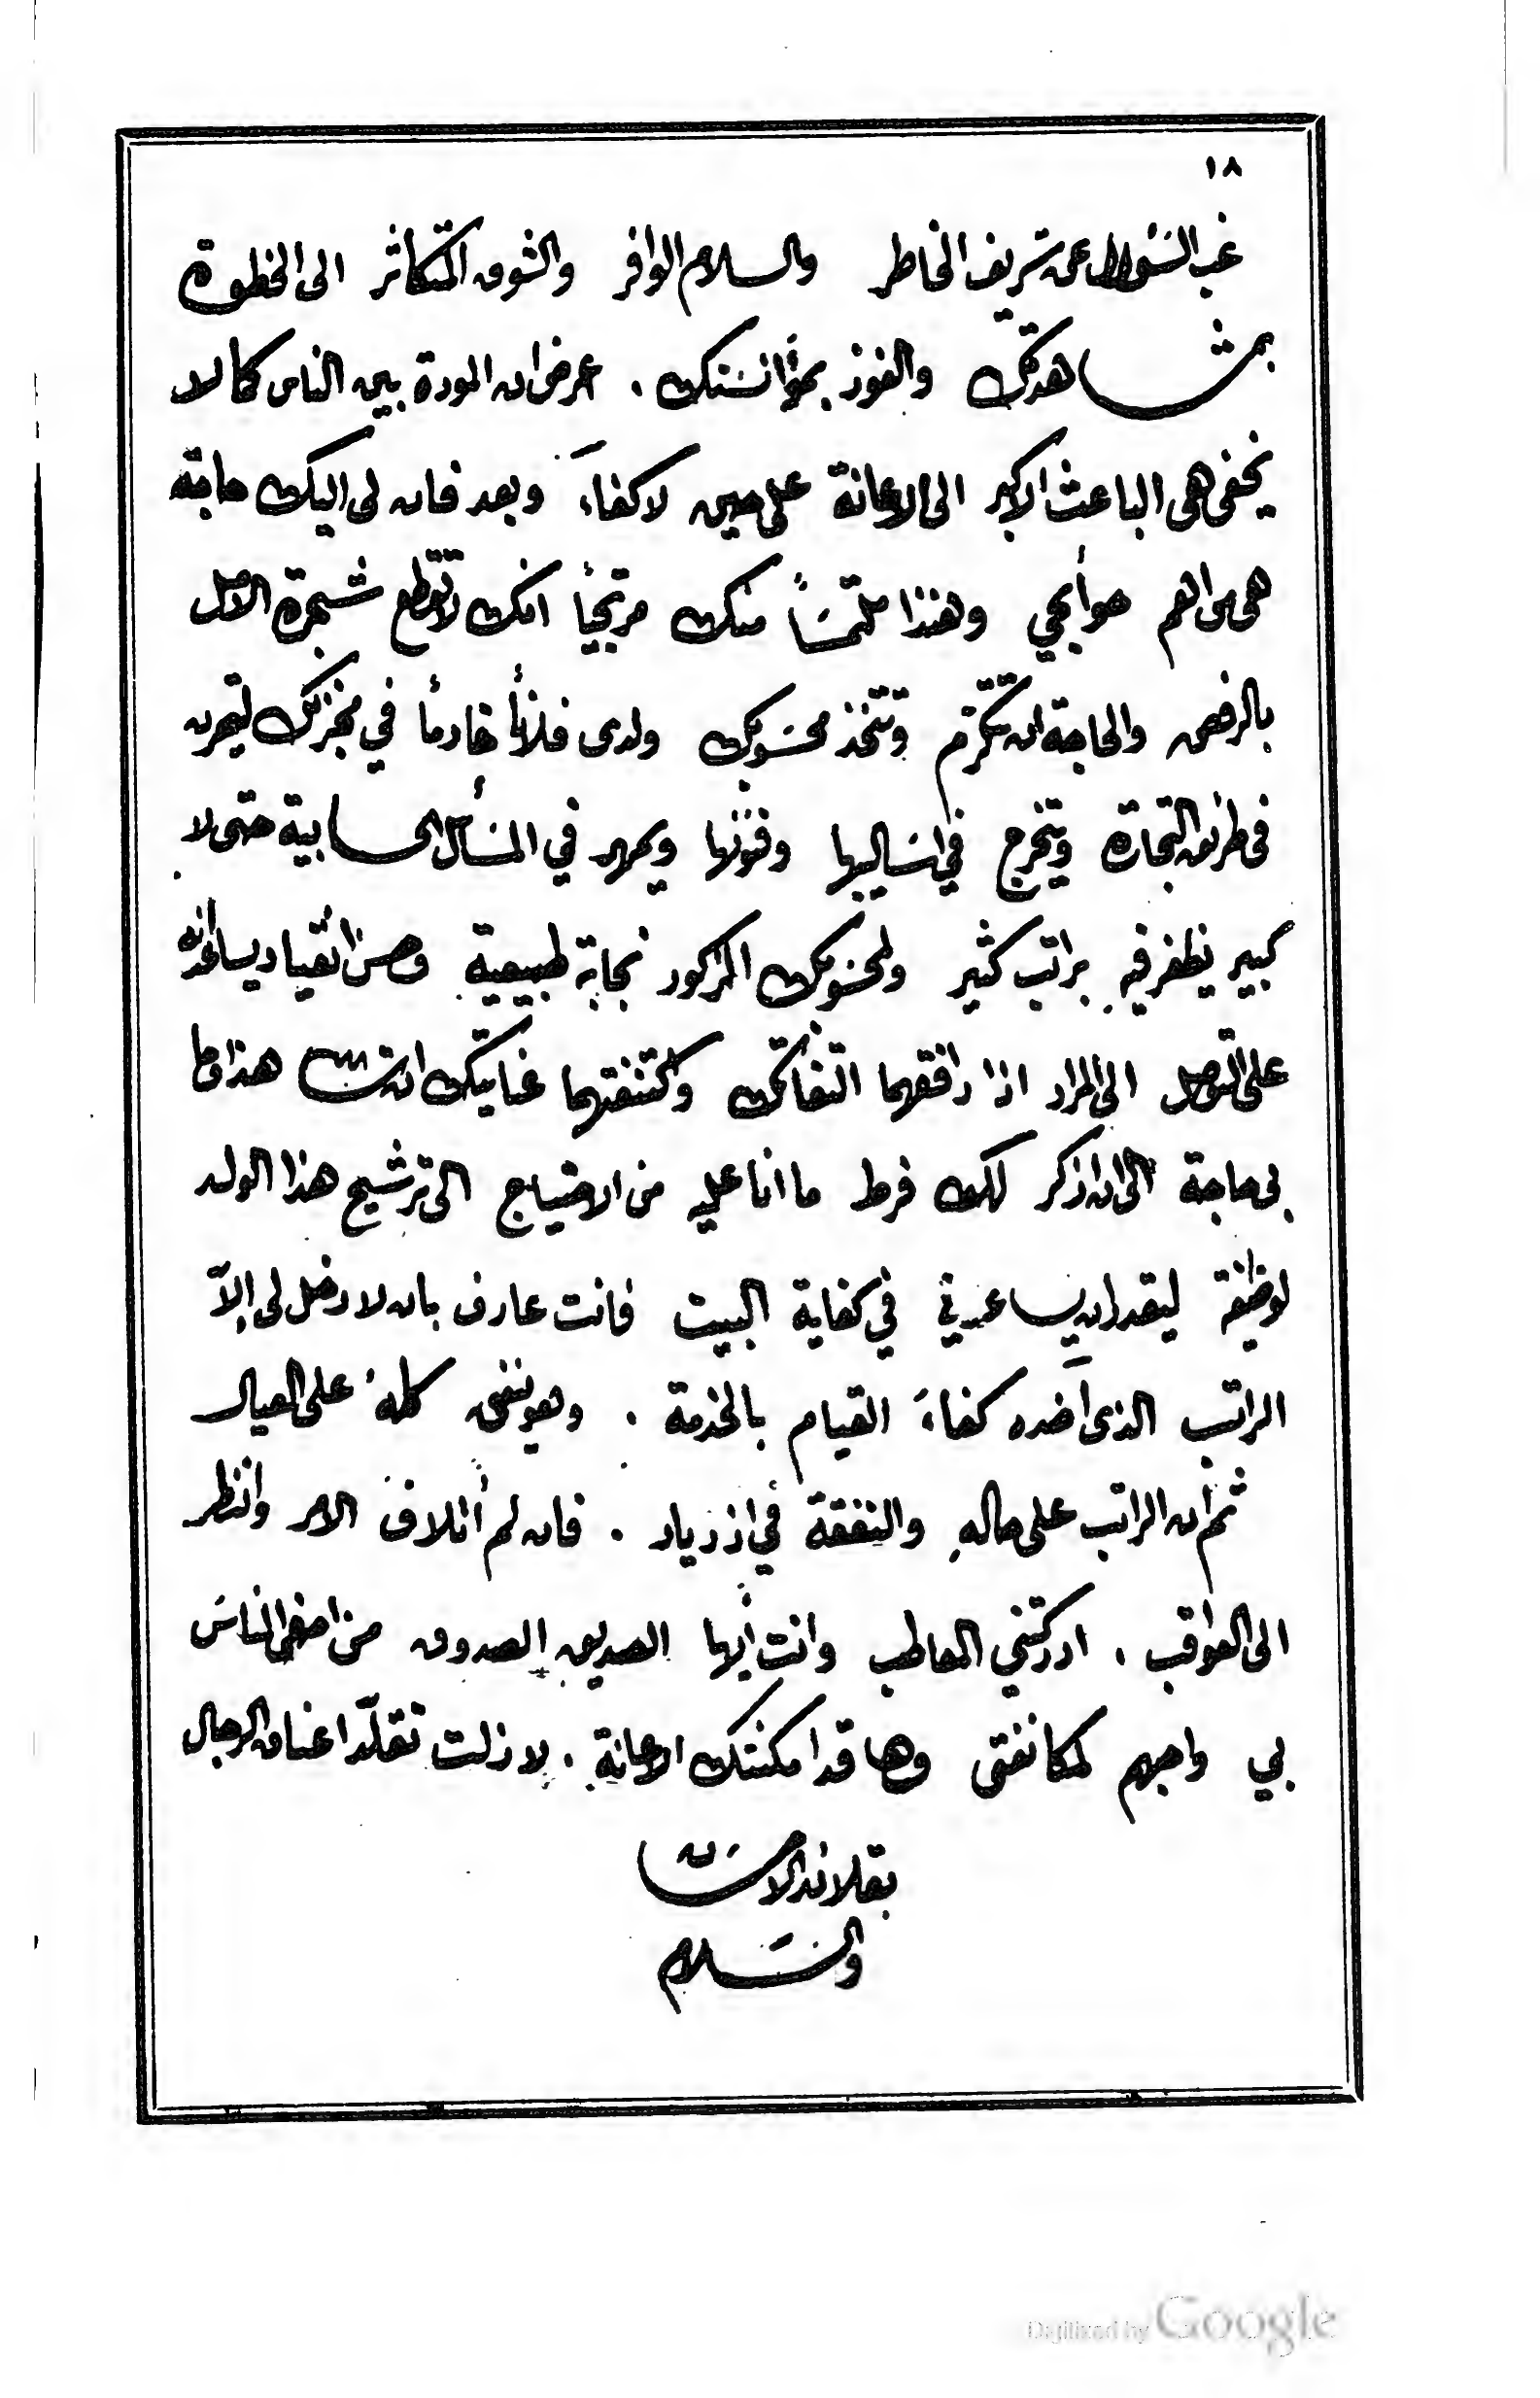 ١٨
غب السؤال عن شريف الخاطر والسلام الوافر والشوق المتكاثر الى الحظوة
بمشاهدتك والفوز بمؤانستك . عرض ان المودة بين الناس كما لا
يخفى هى الباعث الاكبر الى الاعانة على حين لا كفاء . وبعد فان لى اليك حاجة
هى من اهم حوأيجي وهنذا ملتمسًا منك مرتجيًا انك لا تقطع شجرة الامل
بالرفض والحاجة ان تتكرّم وتتخذ محسوبك ولدى فلانًا خادمًا في مخزنك ليتمرن
فى طرق التجارة ويتخرج في اساليبها وفنونها ويمهر في المسأل الحسابية حتى لا
كبير يظفر فيه براتب كثير ولمحسوبك المذكور نجابة طبيعية وحسن انقياد يساعدانه
على التوصل الى المراد اذا رافقهما التفاتك واكتنفتهما عنايتك ان شا هذا وما
بى حاجة الى ان اذكر لك فرط ما انا عليه من الاحتياج الى ترشيح هذا الولد
لوظيفة ليقدر ان يساعدني في كفاية البيت فانت عارف بان لا دخل لى إلاّ
الراتب الذى آخذه كفاءَ القيام بالخدمة . وهو ينفق كلهُ على العيال
ثم ان الراتب على حالهِ والنفقة في ازدياد . فان لم أتلاف الامر وانظر
الى العواقب . ادركتني المعاطب وانت أيها الصديق الصدوق من احفى الناس
بي واحبهم لمكانفتى وها قد امكنتك الاعانة . لا زلت تقلّد اعناق الرجال
بقلائد الاحسان
والسلام
Digitized by Google